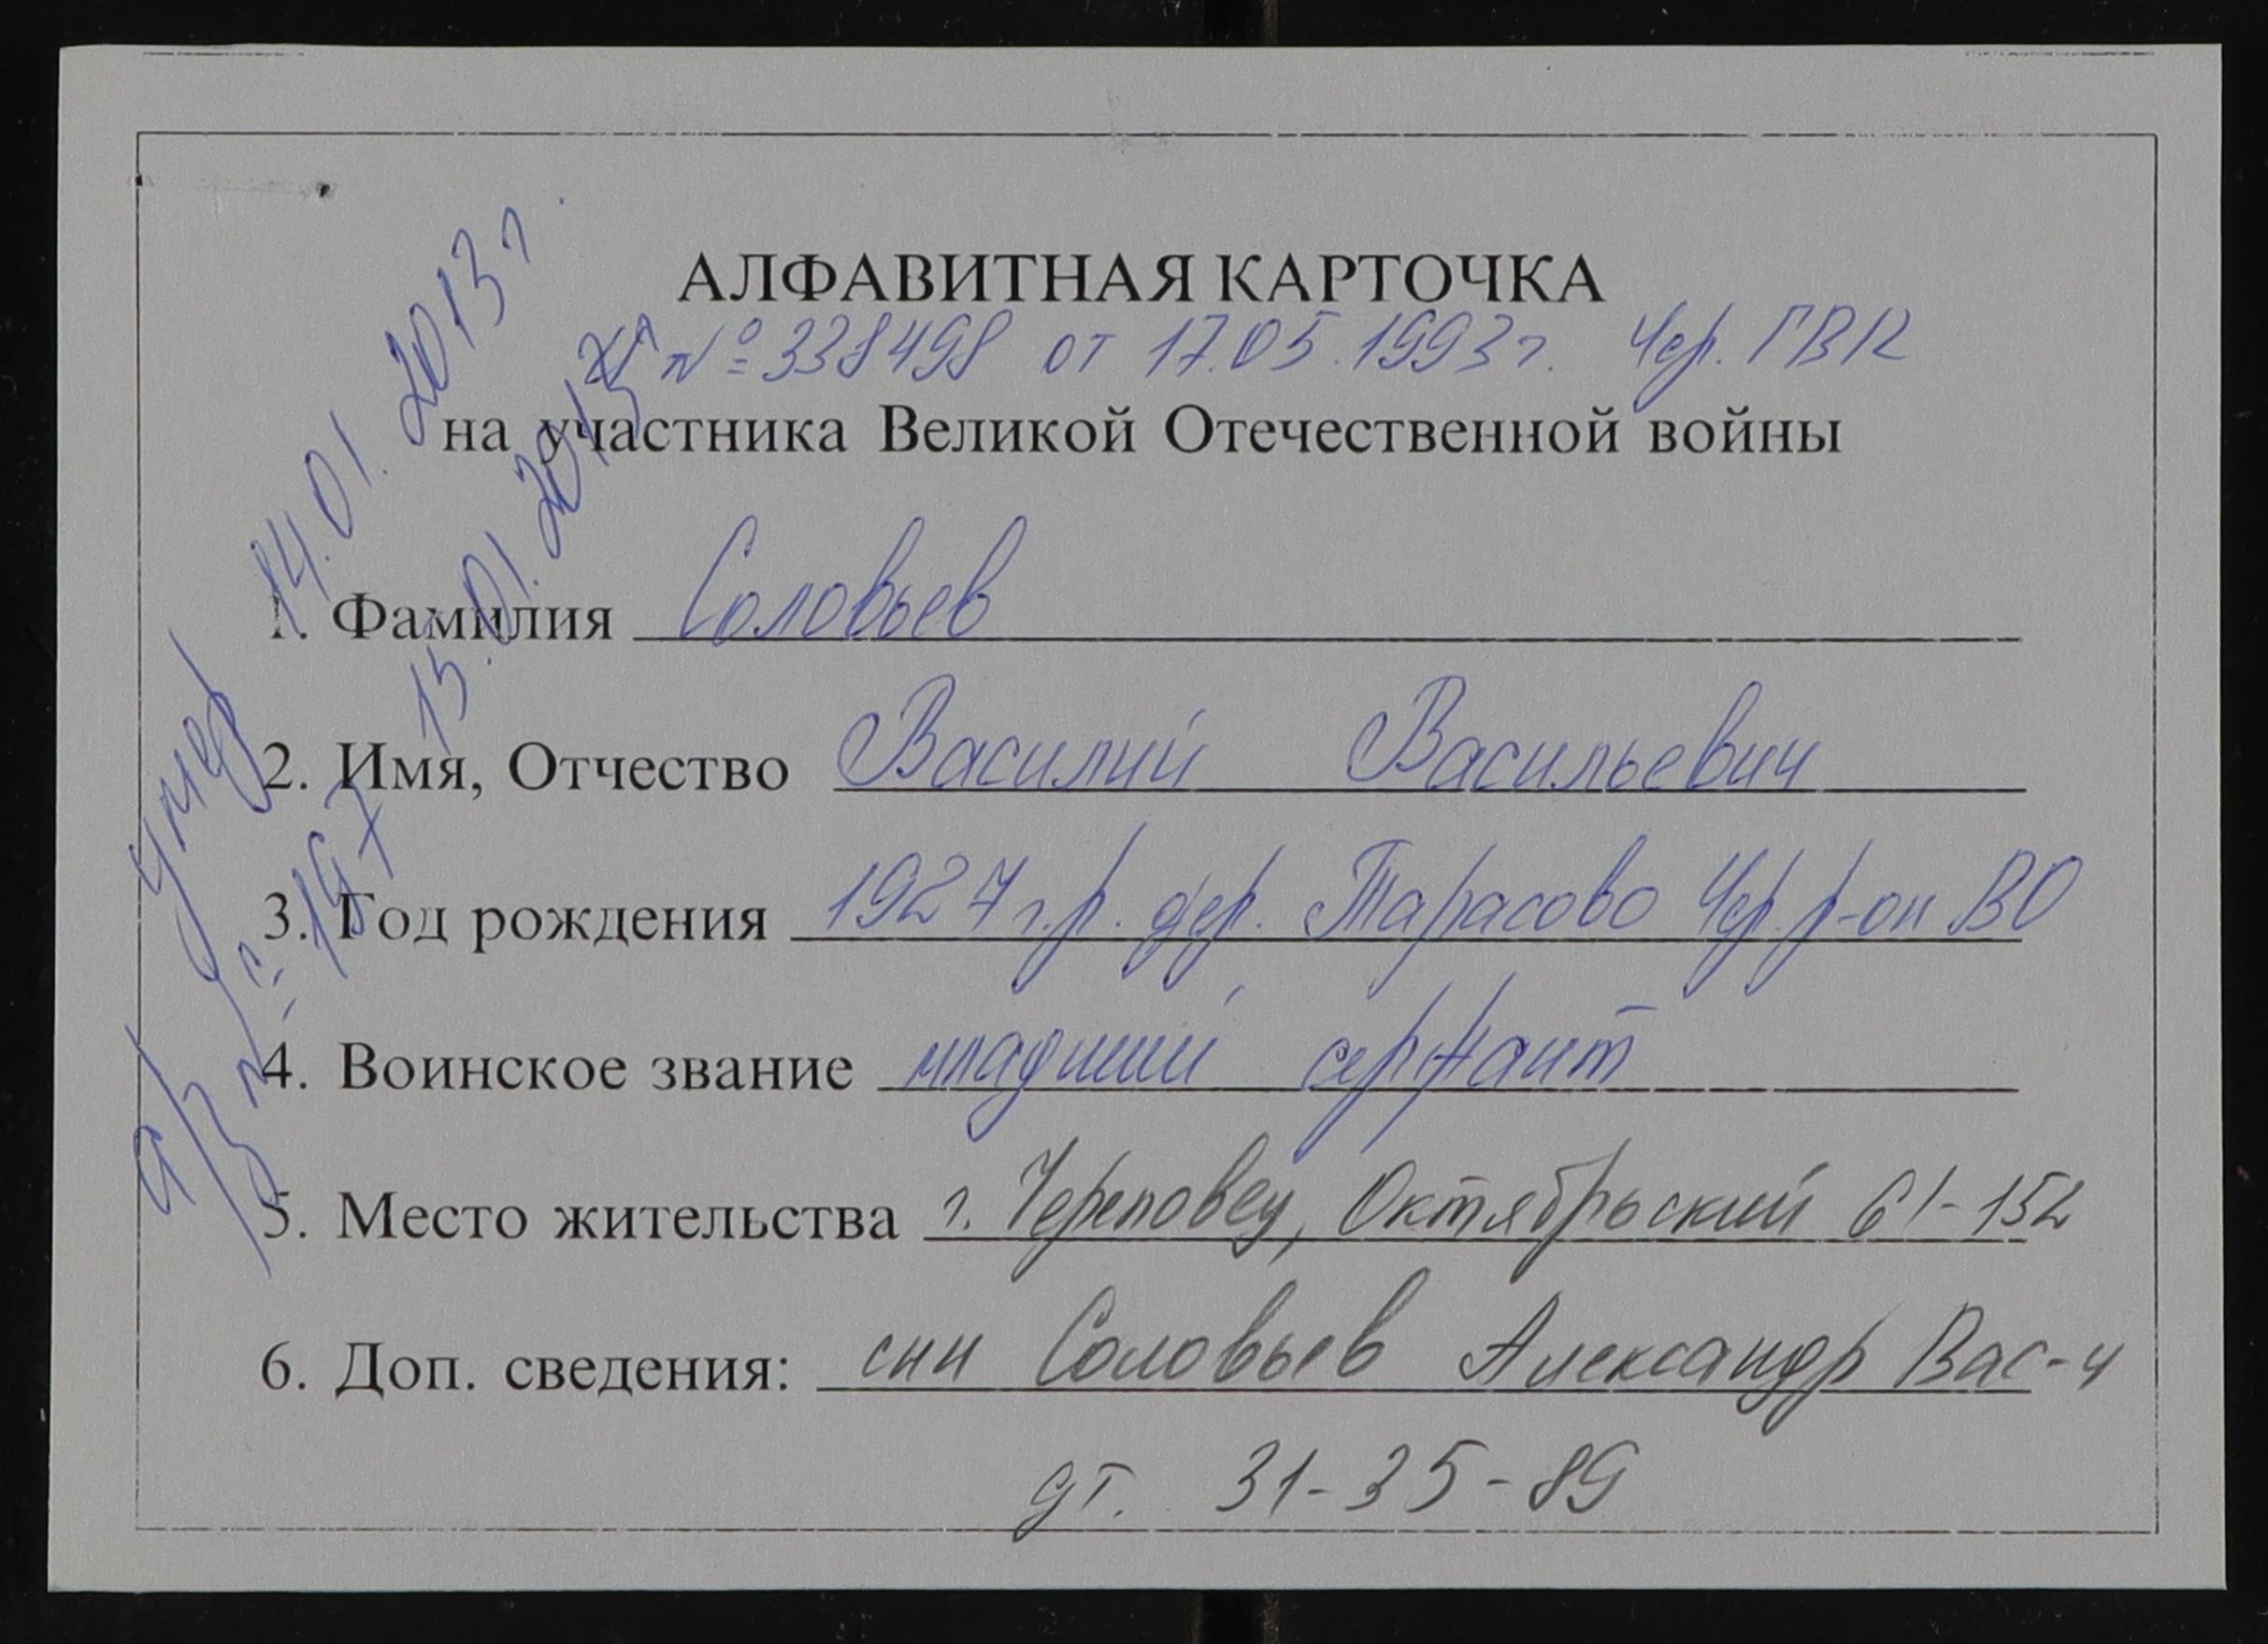 АЛФАВИТНАЯ КАРТОЧКА
№ 338498 от 17.05.1993г. Чер. ГВК
на участника Великой Отечественной войны
1. Фамилия Соловьев
2. Имя, Отчество Василий Васильевич
3. Год рождения 1927 г.р. дер. Тарасово Чер. р-он ВО
4. Воинское звание младший сержант
5. Место жительства г. Череповец, Октябрьский 61-152
6. Доп. сведения: сын Соловьев Александр Вас-ч
дт. 31-35-89
умер 14.01.2013г.
а/з № 197 15.01.2013г